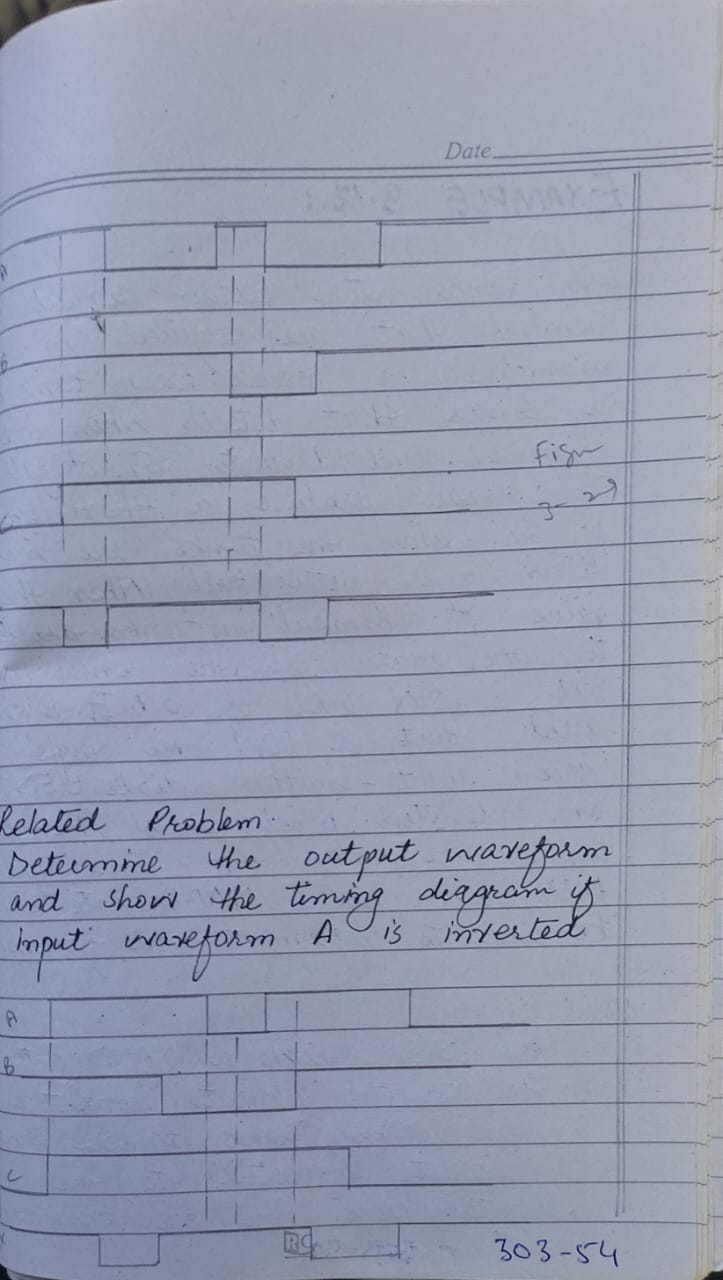 Date
A
B
C
Figu
3-29
Related Problem.
Determine the output waveform
and show the timing diagram if
input waveform A is inverted
A
B
C
X
RC
303-54